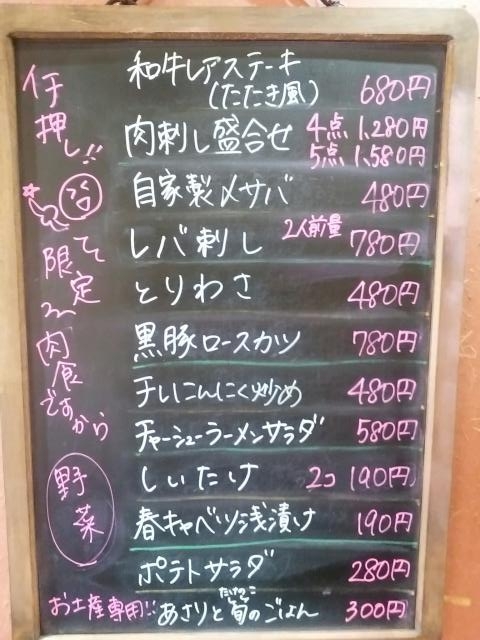 イチ押し!!
限定
肉食ですから
和牛レアステーキ
(たたき風) 680円
肉刺し盛合せ 4点 1,280円
5点 1,580円
自家製〆サバ 480円
レバ刺し 2人前量 780円
とりわさ 480円
黒豚ロースカツ 780円
にんにく炒め 480円
チャーシューラーメンサラダ 580円
野菜
しいたけ 2コ 190円
春キャベツ浅漬け 190円
ポテトサラダ 280円
お土産専用!! あさりと旬のごはん 300円
たけのこ